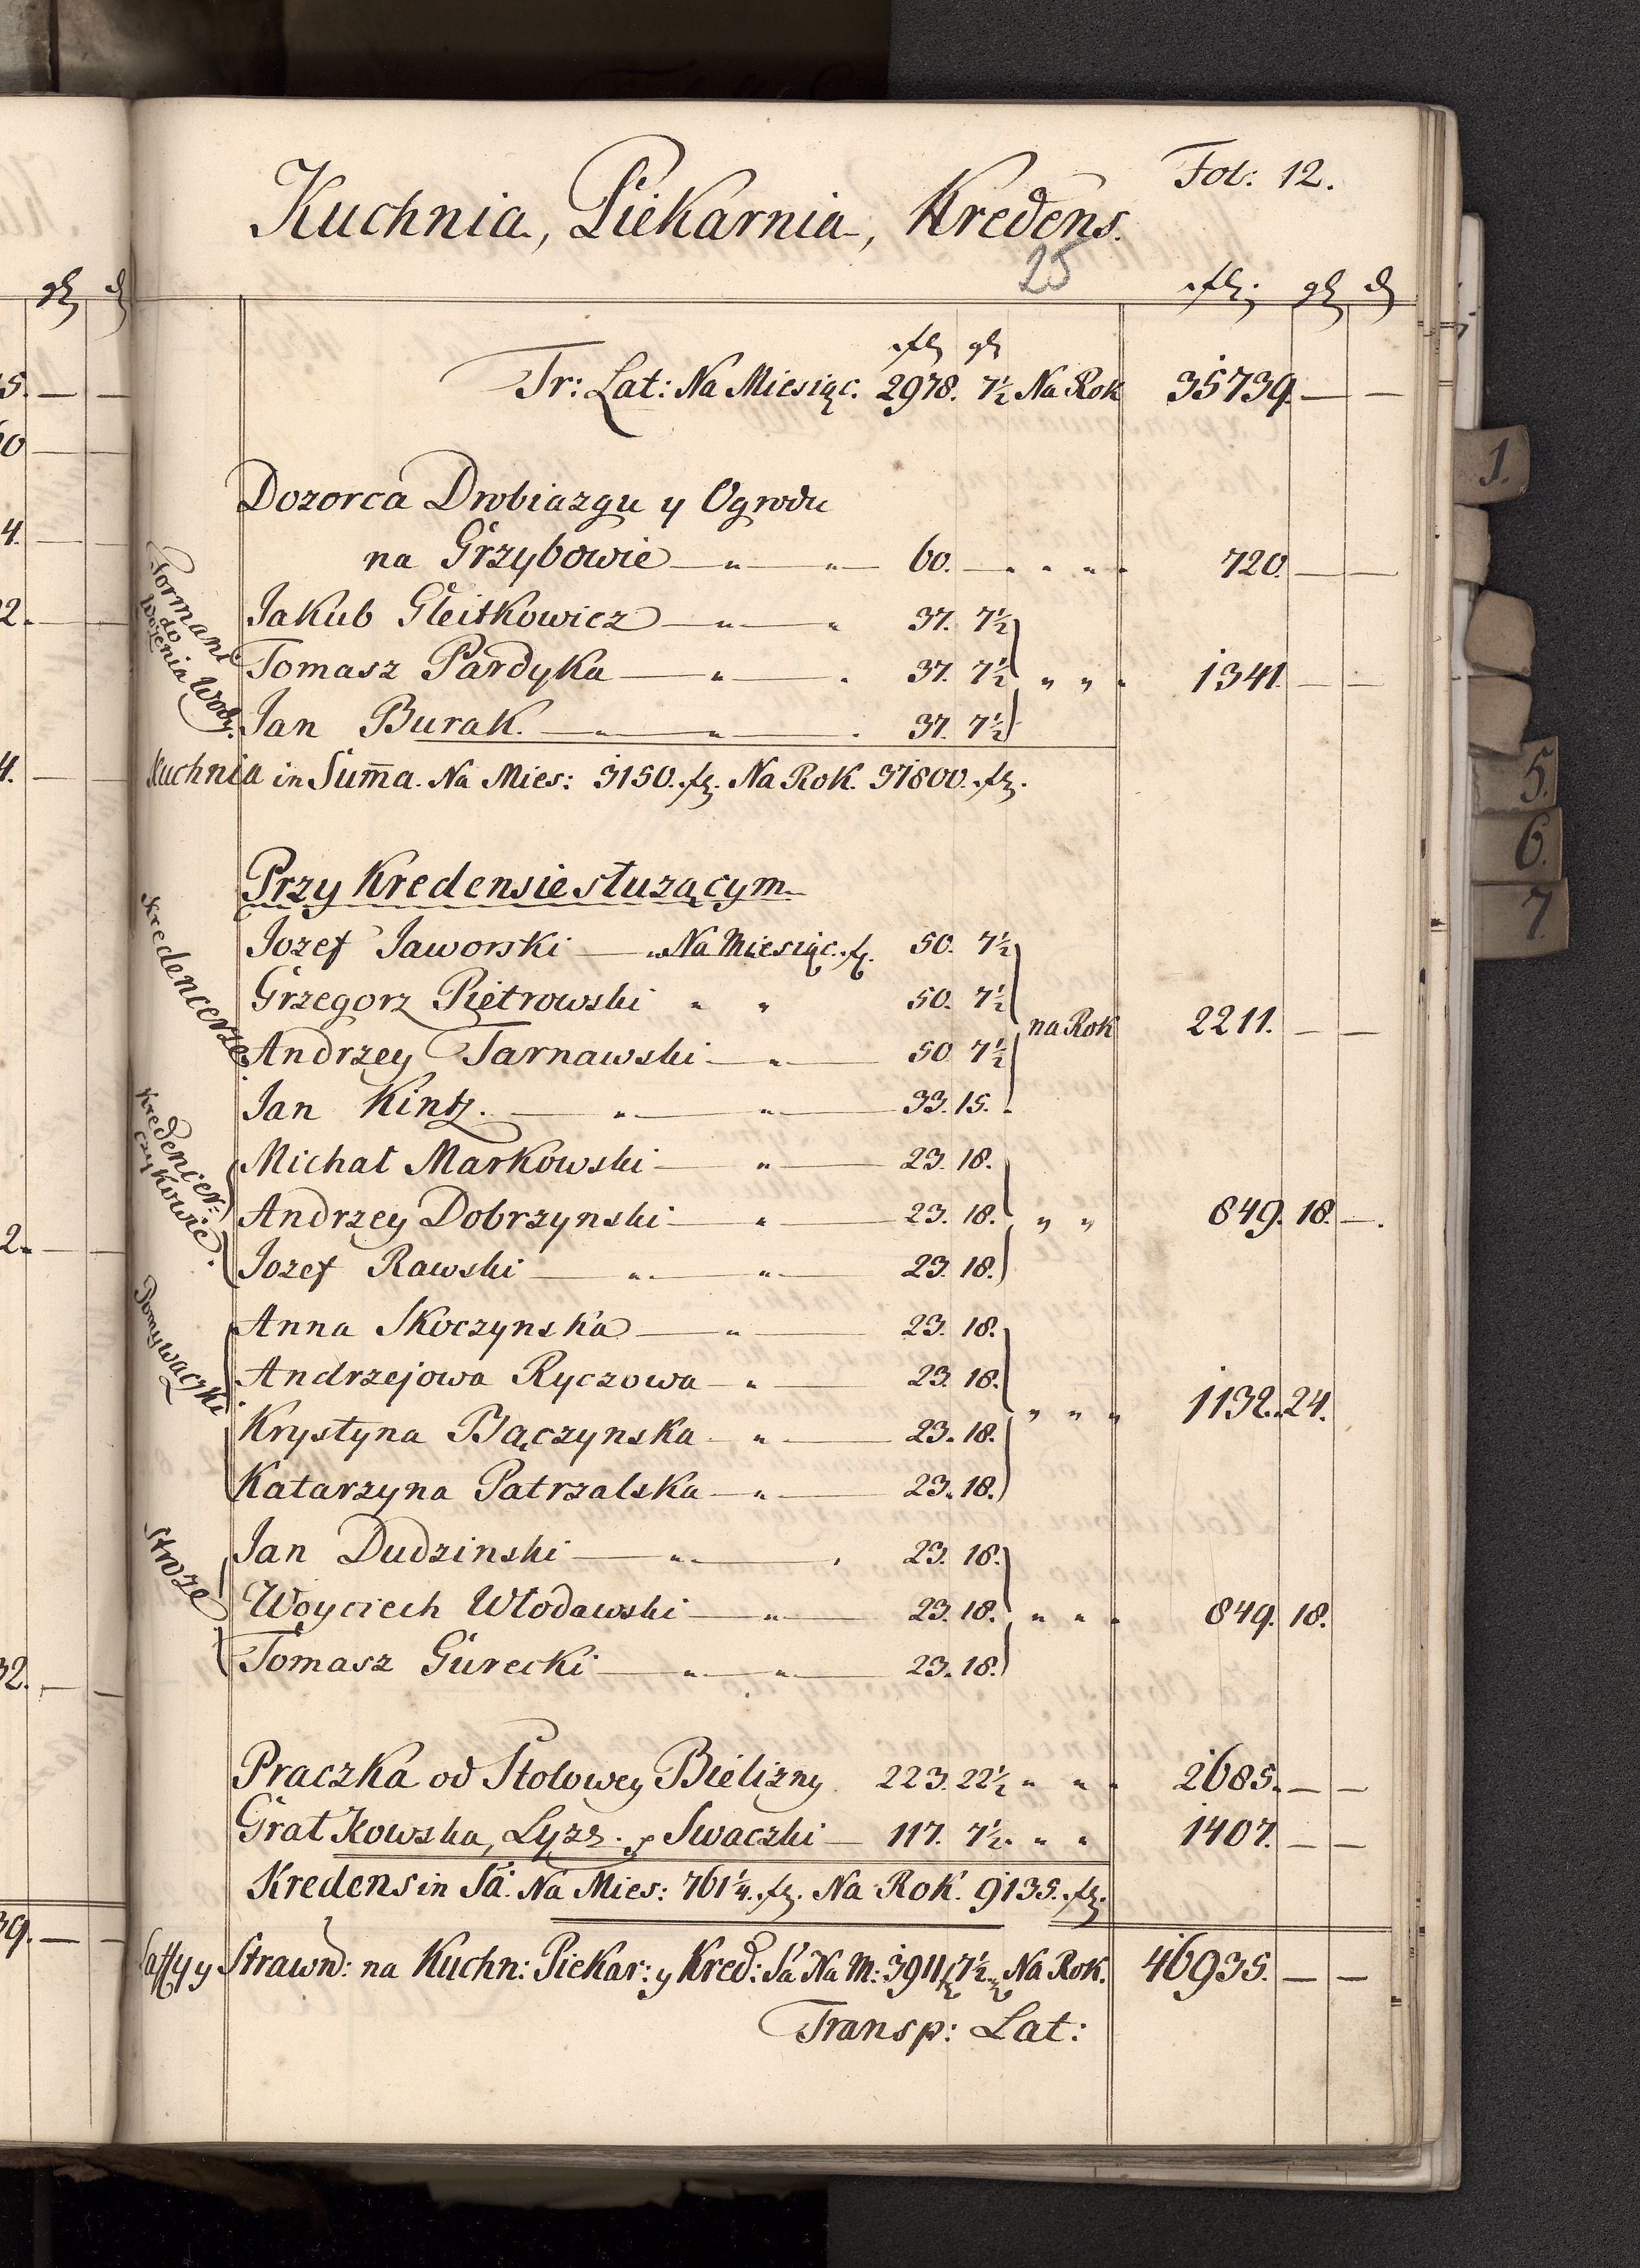 Fol: 12.
Kuchnia, Piekarnia, Kredens.
25
fl. gl d
fl gl
Tr: Lat: Na Miesiąc. 2978. 7½ Na Rok 35739. — —
Dozorca Drobiazgu y Ogrodu
na Grzybowie — " — " — 60. — " " " 720. — —
Formani do Wożenia Wody.
Jakub Gleitkowicz — " — " 37. 7½
Tomasz Pardyka — " — . 37. 7½ " " " 1341. — —
Jan Burak. — " — " — . 37. 7½
Kuchnia in Sum̄a. Na Mies: 3150. fl. Na Rok. 37800. fl.
Przy Kredensie służącym
Kredencerze
Jozef Jaworski — " Na Miesiąc. fl. 50. 7½
Grzegorz Pietrowski " " 50. 7½
na Rok 2211. — —
Andrzey Tarnawski — " — 50 7½
Jan Kintz. — " — " — 33. 15.
Kredencer=
czykowie.
Michał Markowski — " — 23. 18.
Andrzey Dobrzynski — " — 23. 18. " " 849. 18. —.
Jozef Rawski — " — " — 23. 18.
Pomywaczki
Anna Skoczynska — " — 23. 18.
Andrzejowa Ryczowa — " — 23. 18.
" " " 1132. 24.
Krystyna Bączynska — " — 23. 18.
Katarzyna Patrzalska — " — 23. 18.
Stroże
Jan Dudzinski — " — , 23. 18.
Woyciech Włodawski — " — 23. 18. " " " 849. 18.
Tomasz Gurecki — " — " — 23. 18.
Praczka od Stołowey Bielizny 223. 22½ " " " 2685. — —
Gratkowska, Lyzs. y Swaczki — 117. 7½. " " 1407. — —
Kredens in Sā. Na Mies: 761¼. fl. Na Rok. 9135. fl.
Saffy y Strawn: na Kuchn: Piekar: y Kred: Sā Na M: 3911 fl 7½ Na Rok. 46935. — —
Transp: Lat:
1.
5.
6.
7.
gl d
5. — —
60 — —
4. — —
22. — —
4. — —
2. — —
32. — —
39. — —